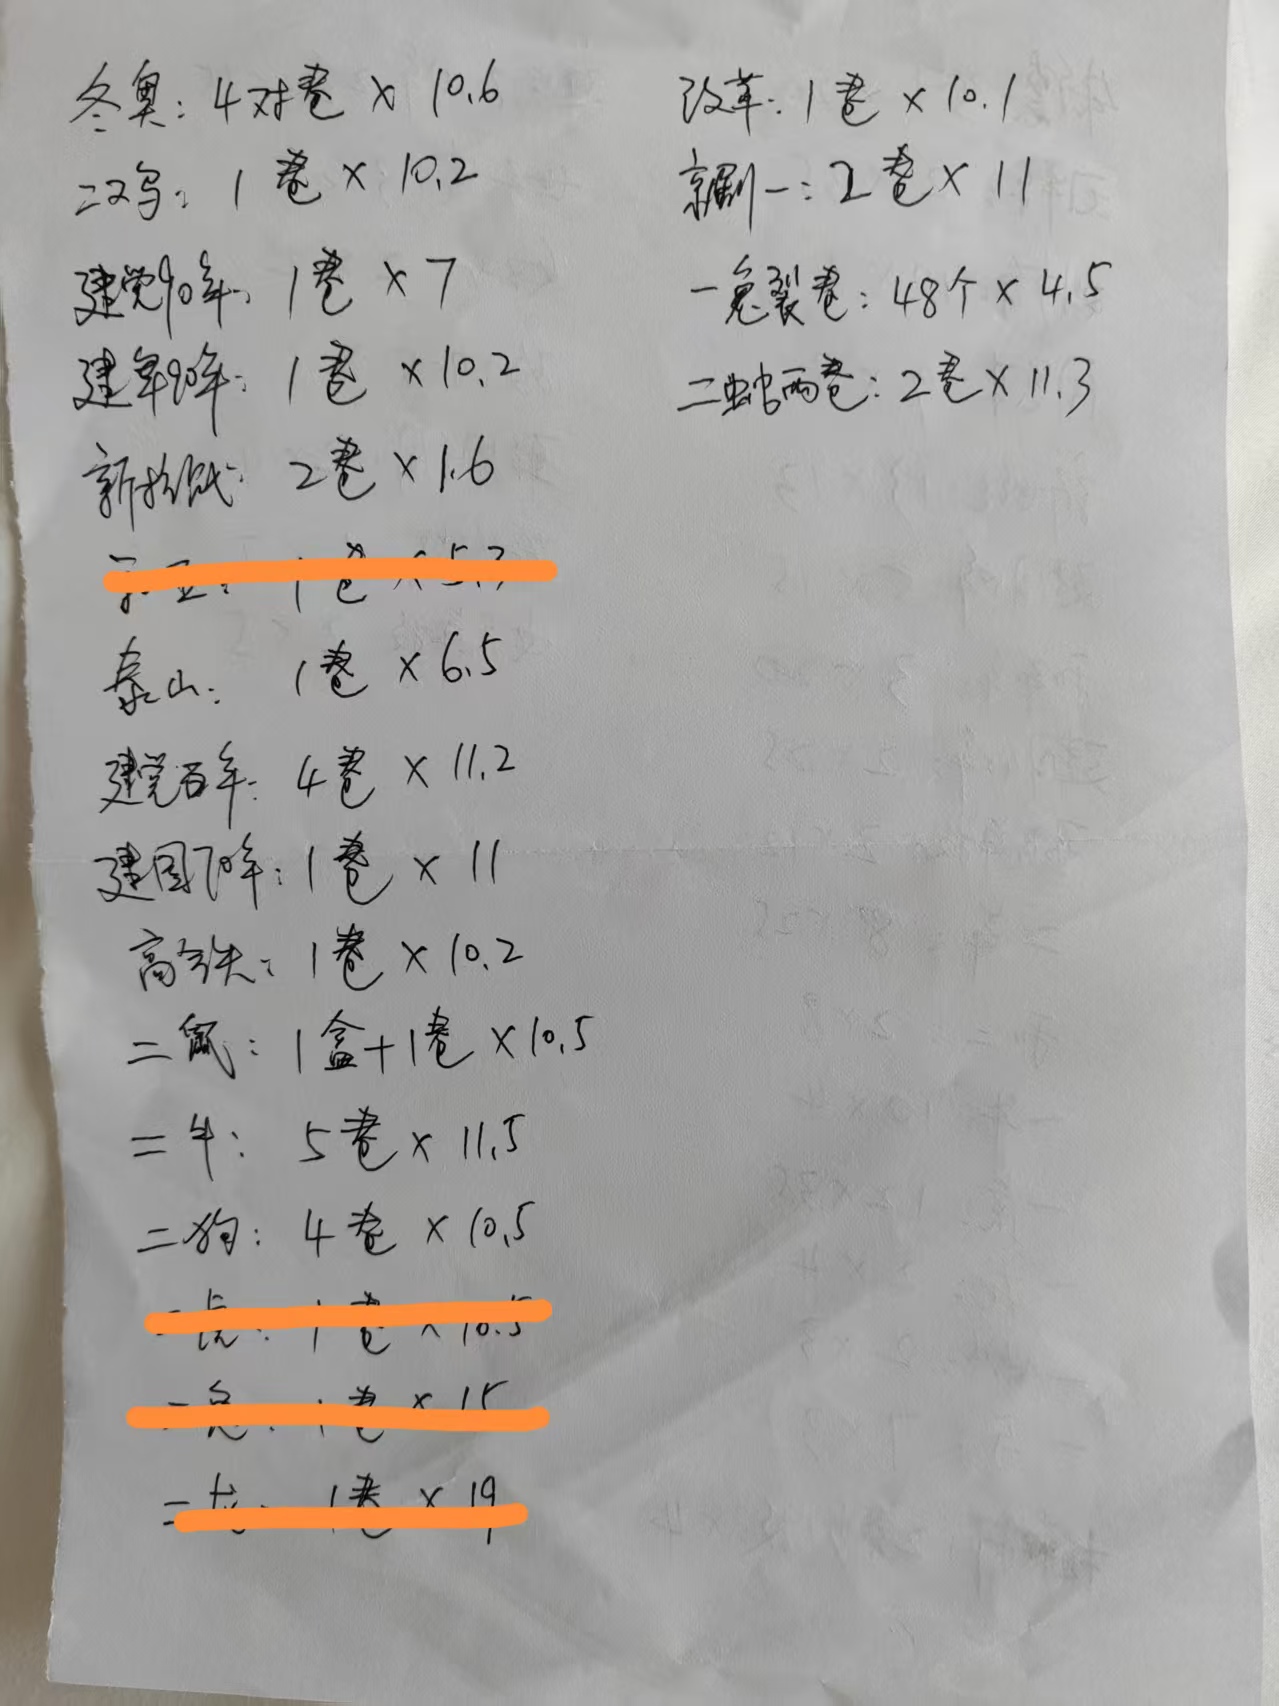 冬奥: 4对卷 × 10.6
二羊: 1卷 × 10.2
建党90年: 1卷 × 7
建军90年: 1卷 × 10.2
新 2卷 × 1.6
1卷 × 5.
泰山: 1卷 × 6.5
建党百年: 4卷 × 11.2
建国70年: 1卷 × 11
高铁: 1卷 × 10.2
二鼠: 1盒+1卷 × 10.5
二牛: 5卷 × 11.5
二狗: 4卷 × 10.5
二虎: 1卷 × 10.5
二兔: 1卷 × 15
二龙: 1卷 × 19
改革: 1卷 × 10.1
京剧一: 2卷 × 11
一兔裂卷: 48个 × 4.5
二蛇两卷: 2卷 × 11.3